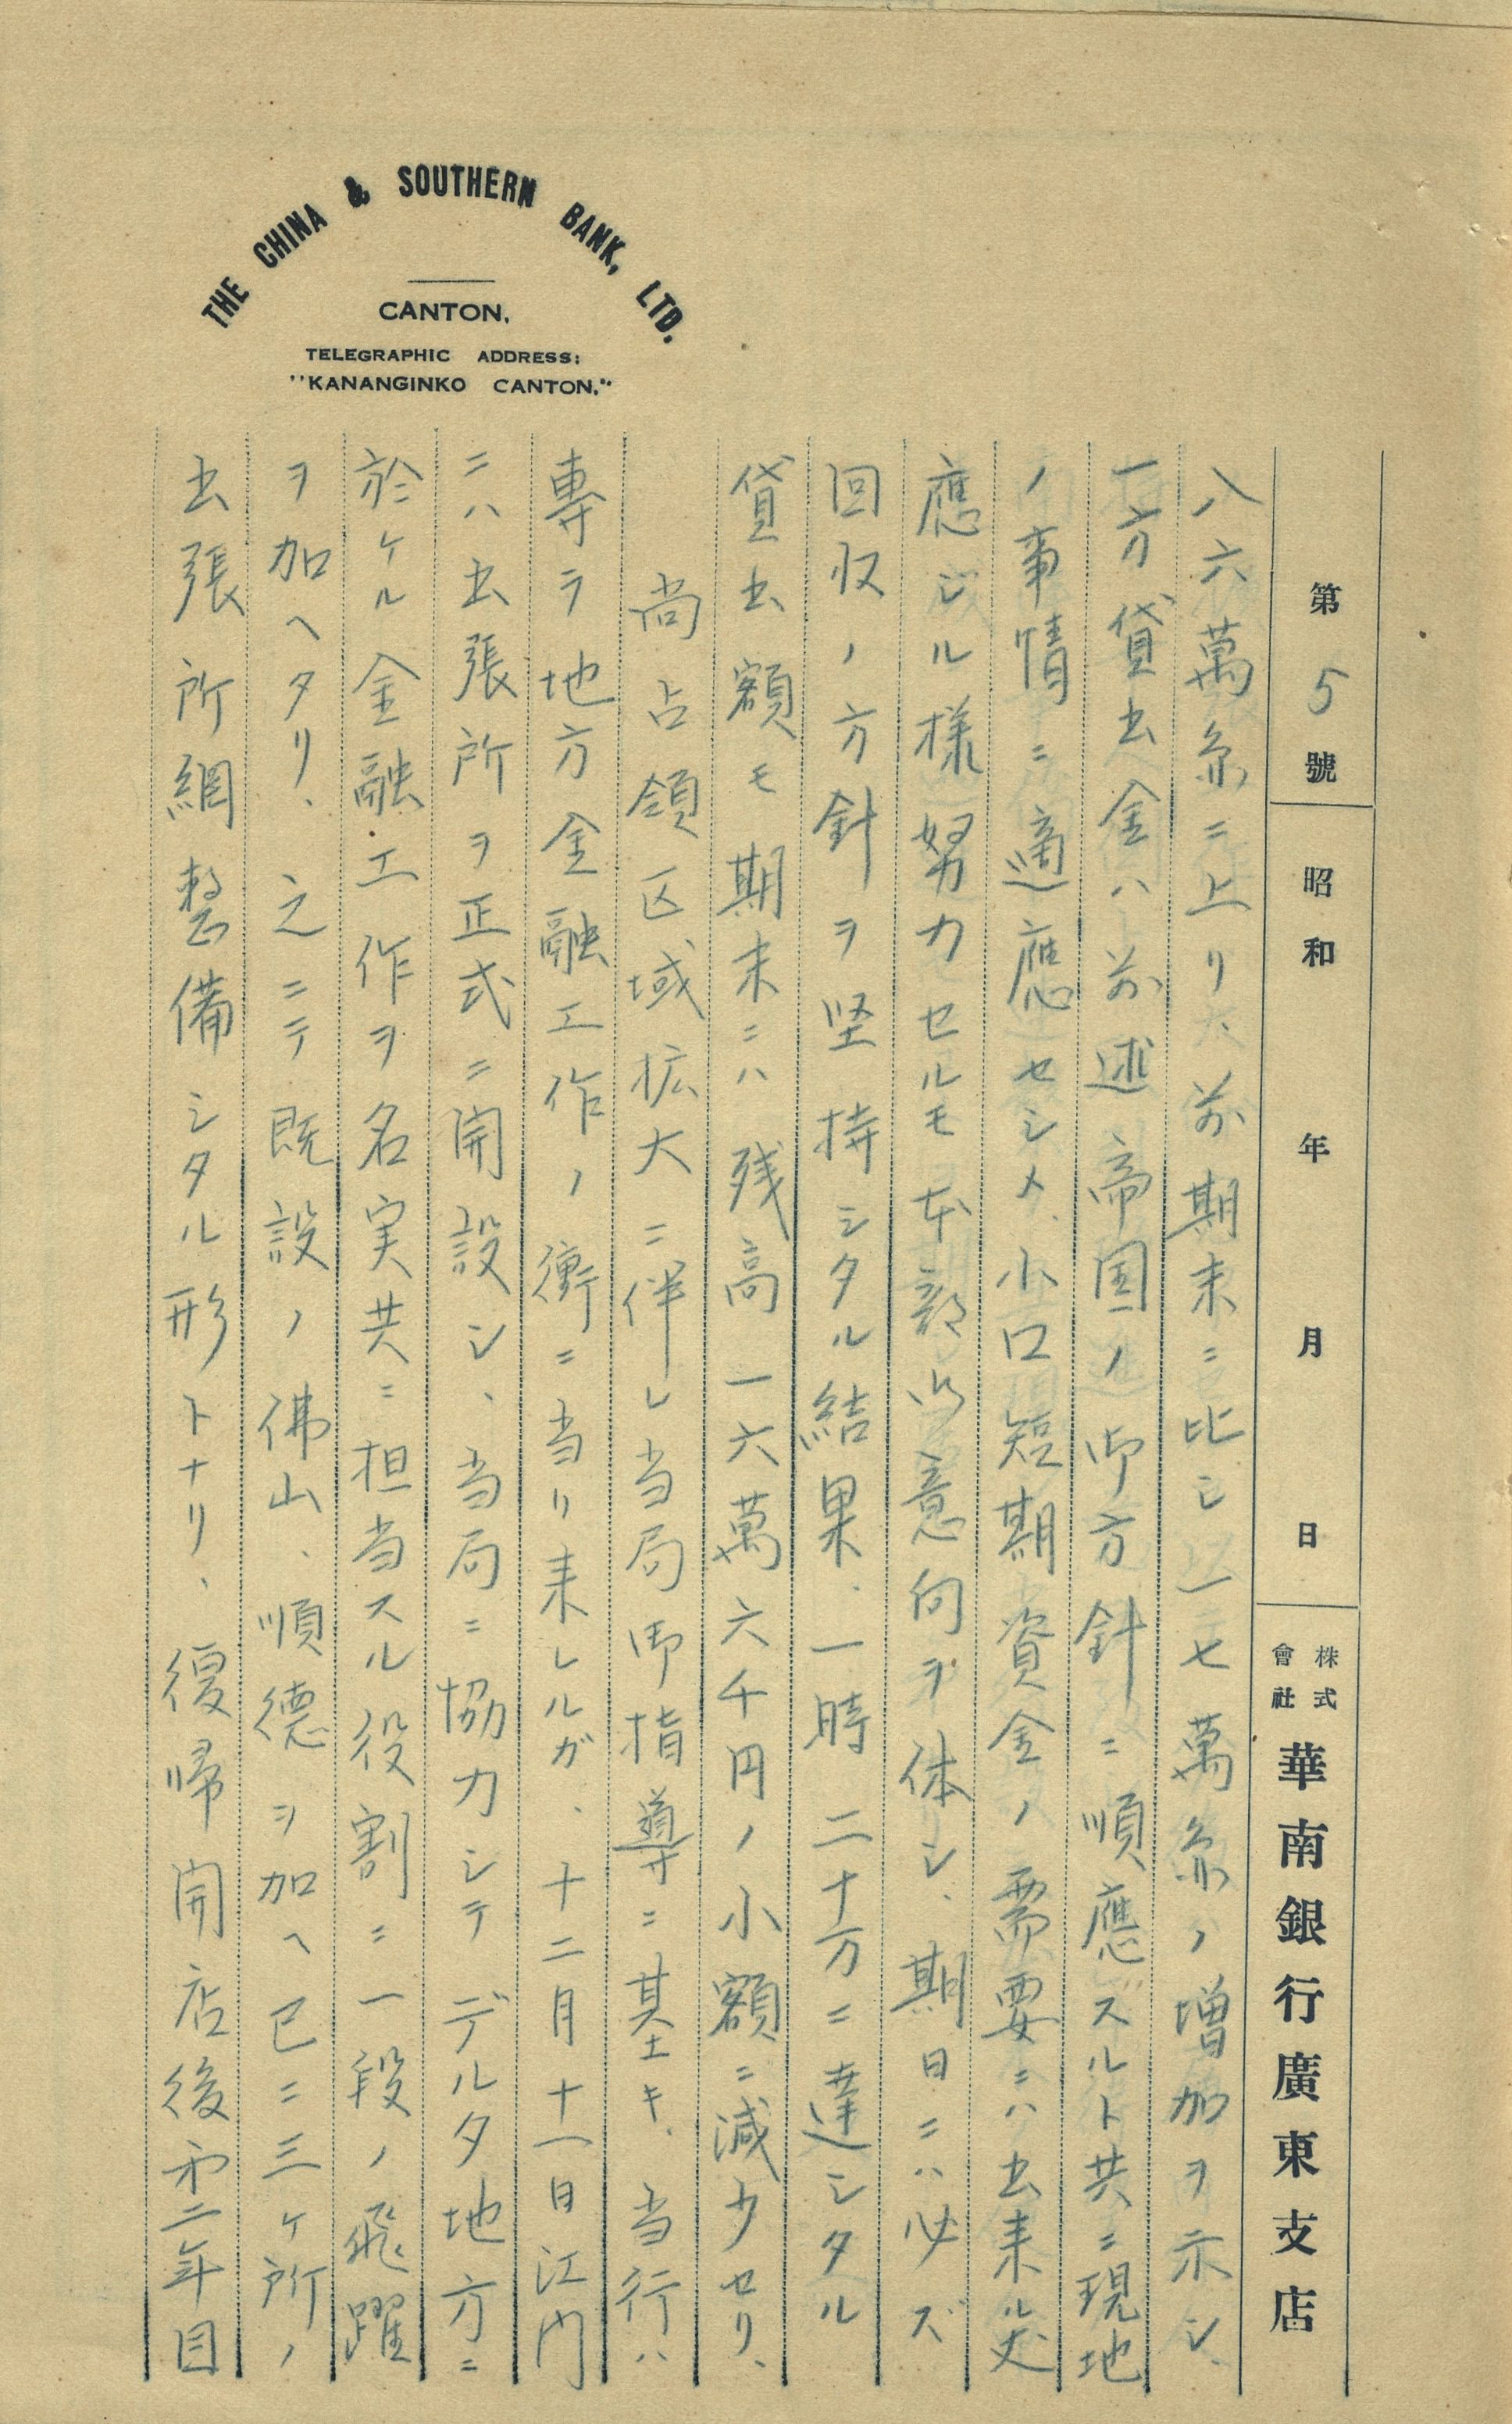 THE CHINA & SOUTHERN BANK, LTD.
CANTON.
TELEGRAPHIC ADDRESS:
"KANANGINKO CANTON."
第 5 號 昭和 年 月 日 株式會社 華南銀行廣東支店
八六萬糸ニ上リ前期末ニ比シ一七萬糸ノ増加ヲ示シ、
一方貸出金ハ前述帝国ノ御方針ニ順應ズルト共ニ現地
ノ事情ニ適應セシメ、小口短期資金ノ需要ニハ出来ル丈
應シル様努力セルモ本部ノ意向ヲ体シ、期日ニハ必ズ
回収ノ方針ヲ坚持シタル結果、一時二十万ニ達シタル
貸出額モ期末ニハ残高一六萬六千円ノ小額ニ減少セリ、
尚占領区域拡大ニ伴レ当局御指導ニ基キ、当行ハ
專ラ地方金融工作ノ衝ニ当リ来レルガ、十二月十一日江門
ニハ出張所ヲ正式ニ開設シ、当局ニ協力シテデルタ地方ニ
於ケル金融工作ヲ名実共ニ担当スル役割ニ一段ノ飛躍
ヲ加ヘタリ、之ニテ既設ノ佛山、順德ヲ加ヘ已ニ三ヶ所ノ
出張所網整備シタル形トナリ、復帰開店後第二年目